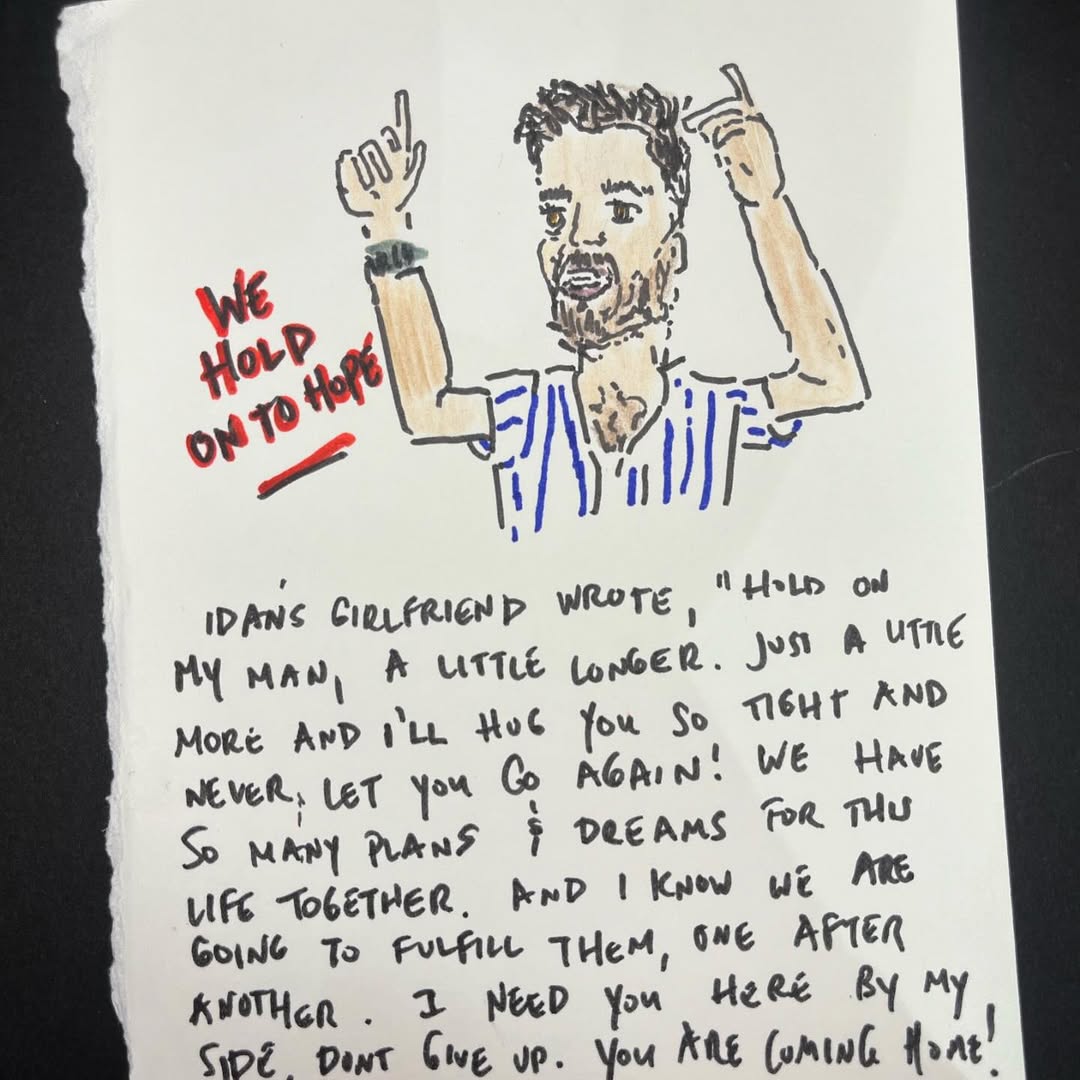 WE
HOLD
ON TO HOPE
IDAN'S GIRLFRIEND WROTE, "HOLD ON
MY MAN, A LITTLE LONGER. JUST A LITTLE
MORE AND I'LL HUG YOU SO TIGHT AND
NEVER, LET YOU GO AGAIN! WE HAVE
SO MANY PLANS & DREAMS FOR THIS
LIFE TOGETHER. AND I KNOW WE ARE
GOING TO FULFILL THEM, ONE AFTER
ANOTHER. I NEED YOU HERE BY MY
SIDE. DONT GIVE UP. YOU ARE COMING HOME!